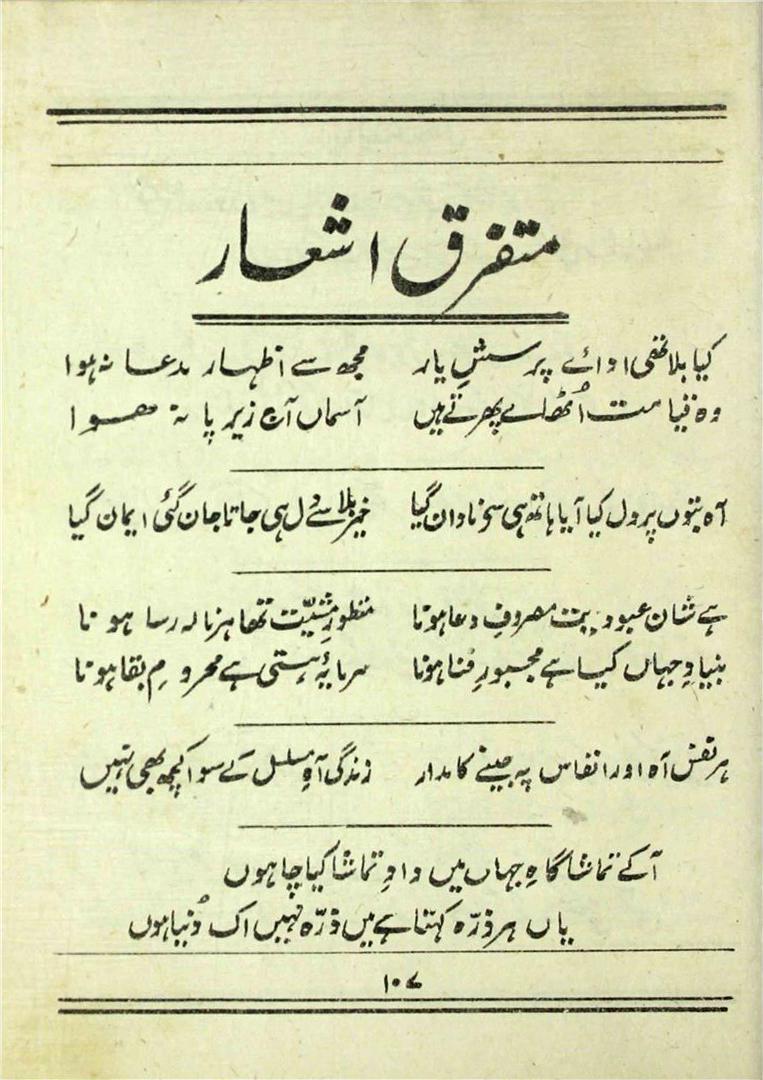 متفرق اشعار
کیا بلا تھی ادائے پرسشِ یار مجھ سے اظہار مدعا نہ ہوا
وہ قیامت اُٹھائے پھرتے ہیں آسماں آج زیر پا نہ ہوا
آہ بتوں پر دل کیا آیا ہاتھ ہی سے نادان گیا خیر بلا سے دل ہی جاتا جان گئی ایمان گیا
ہے شان عبودیت مصروفِ دعا ہونا منظورِ مشیّت تھا ہر نالہ رسا ہونا
بنیادِ جہاں کیا ہے مجبورِ فنا ہونا سرمایۂ ہستی ہے محرومِ بقا ہونا
ہر نفس آہ اور انفاس پہ جینے کا مدار زندگی آہِ مسلسل کے سوا کچھ بھی نہیں
آکے تماشا گاہِ جہاں میں دادِ تماشا کیا چاہوں
یاں ہر ذرّہ کہتا ہے میں ذرّہ نہیں اک دُنیا ہوں
۱۰۷